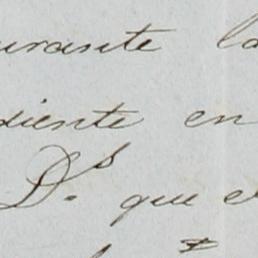 urante la
diente en
D.s que e